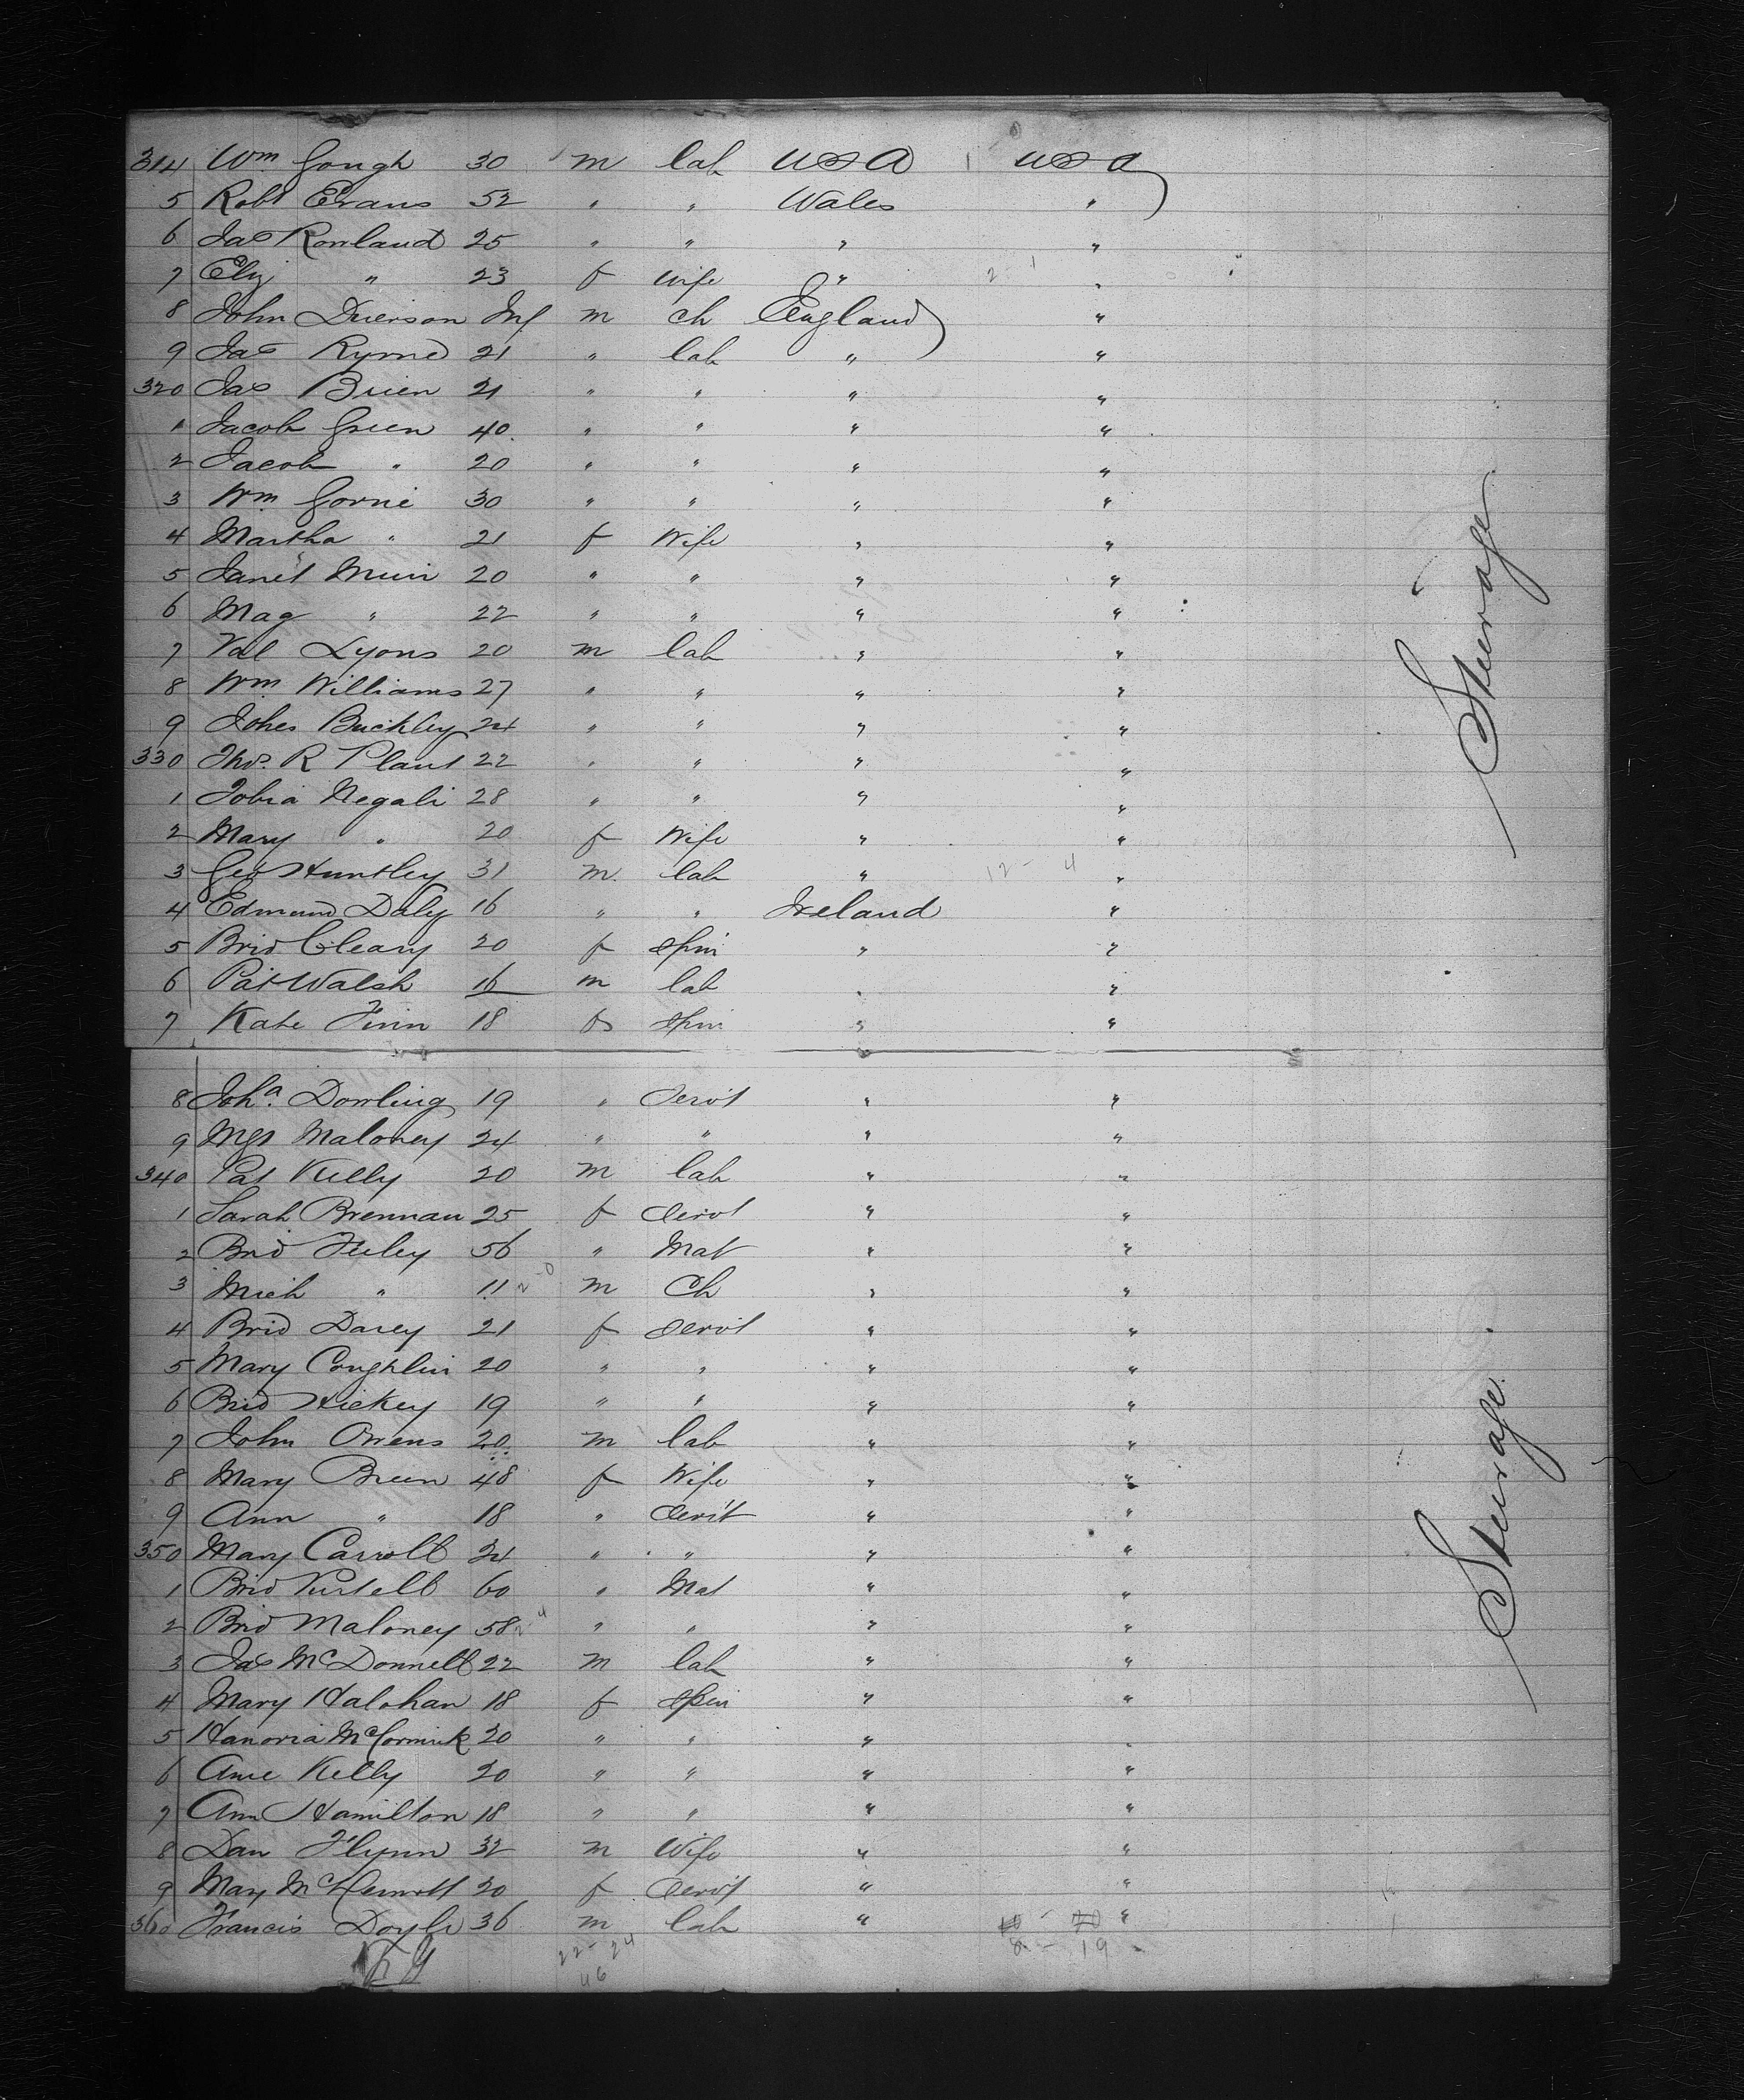 314 Wm Gough 30 m lab USA 1 USA
5 Robt Evans 52 " " Wales "
6 Jas Rowland 25 " " " "
7 Eliz " 23 f wife " 2 - 1 "
8 John Duerson Inf m ch England "
9 Jas Rymed 21 " lab " "
320 Jas Brien 21 " " " "
1 Jacob Green 40 " " " "
2 Jacob " 20 " " " "
3 Wm Gorne 30 " " " "
4 Martha " 21 f Wife " "
5 Janet Muir 20 " " " "
6 Mag " 22 " " " "
7 Val Lyons 20 m lab " "
8 Wm Williams 27 " " " "
9 Johes Buckley 24 " " " "
330 Thos. R Plant 22 " " " "
1 Tobia Negali 28 " " " "
2 Mary " 20 f Wife " "
3 Geo Huntley 31 m lab " 12 - 4 "
4 Edmund Daly 16 " " Ireland "
5 Brid Cleary 20 f spin " "
6 Pat Walsh 16 m lab " "
7 Kate Finn 18 f spin " "
8 Joha. Dowling 19 " Servt " "
9 Mgt Maloney 24 " " " "
340 Pat Kelly 20 m lab " "
1 Sarah Brennan 25 f Servt " "
2 Brid Feeley 56 " Mat " "
3 Mich " 11 2-0 m Ch " "
4 Brid Darey 21 f servt " "
5 Mary Coughlin 20 " " " "
6 Brid Hickey 19 " " " "
7 John Owens 20 m lab " "
8 Mary Breen 48 f Wife " "
9 Ann " 18 " Servt " "
350 Mary Carroll 24 " " " "
1 Brid Purtell 60 " Mat " "
2 Brid Maloney 58 2-4 " " " "
3 Jas McDonnell 22 m lab " "
4 Mary Halohan 18 f spin " "
5 Hanoria McCormick 20 " " " "
6 Ane Kelly 20 " " " "
7 Ann Hamilton 18 " " " "
8 Dan Flynn 32 m Wife " "
9 Mary McDermott 20 f Servt " "
360 Francis Doyle 36 m lab " 10 - 20 "
22 - 24 8 - 19
46
Steerage
Steerage